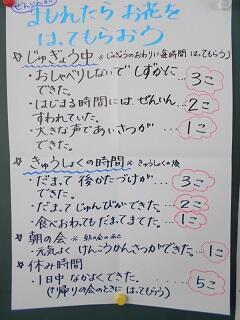 ぜんいんが
まもれたら お花を
はってもらおう
☆じゅぎょう中 ※じゅぎょうのおわりに(毎時間 はってもらう)
・おしゃべりしないで しずかに
できた。 … 3こ
・はじまる時間には、ぜんいん
すわれていた。 … 2こ
・大きな声であいさつが
できた。 … 1こ
☆きゅうしょくの時間 ※きゅうしょくの後
・だまって 後かたづけが
できた。 … 3こ
・だまって じゅんびができた。 … 2こ
・食べおわってもだまってまてた。 … 1こ
☆朝の会 ※朝の会のあと
・元気よく けんこうかんさつができた。 … 1こ
☆休み時間
・1日中 なかよくできた。 … 5こ
(さ帰りの会のときに はってもらう)